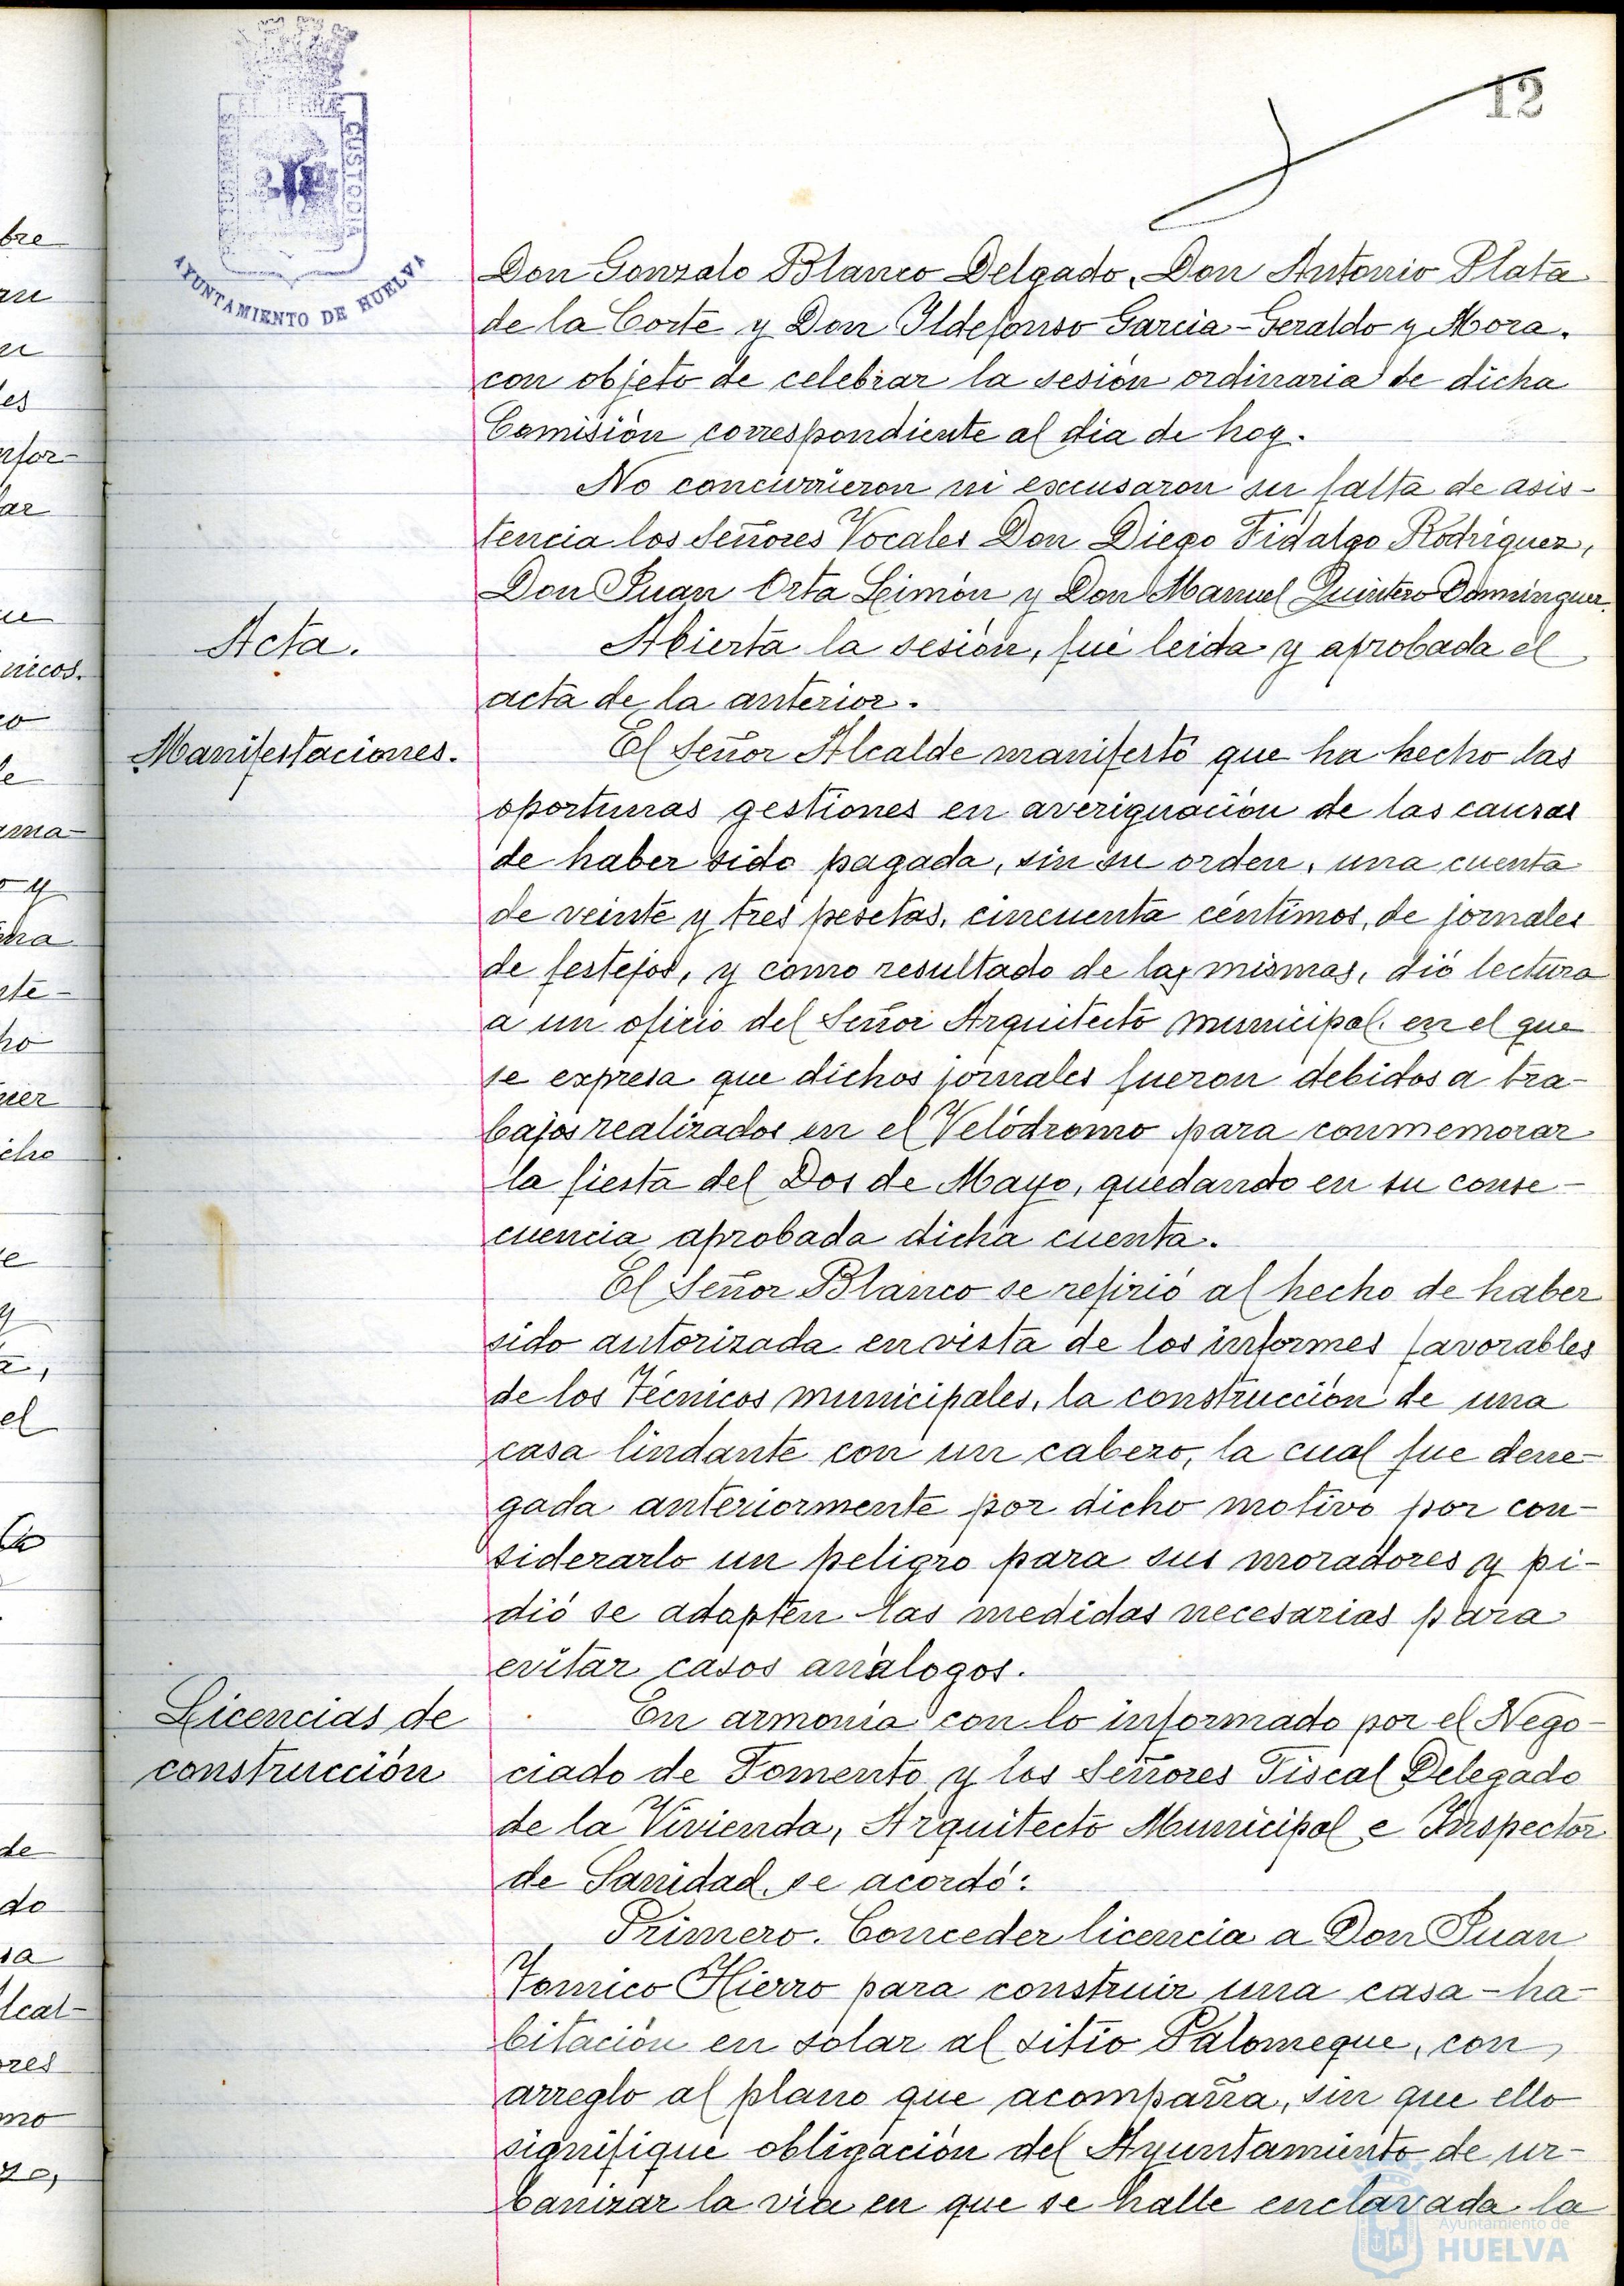 12
CUSTODIA
AYUNTAMIENTO DE HUELVA
Don Gonzalo Blanco Delgado, Don Antonio Plata
de la Corte y Don Ildefonso Garcia-Geraldo y Mora.
con objeto de celebrar la sesión ordinaria de dicha
Comisión correspondiente al dia de hoy.
No concurrieron ni excusaron su falta de asis-
tencia los Señores Vocales Don Diego Fidalgo Rodriguez,
Don Juan Orta Limón y Don Manuel Quintero Dominguez.
Acta.
Abierta la sesión, fué leida y aprobada el
acta de la anterior.
Manifestaciones.
El Señor Alcalde manifestó que ha hecho las
oportunas gestiones en averiguación de las causas
de haber sido pagada, sin su orden, una cuenta
de veinte y tres pesetas, cincuenta céntimos, de jornales
de festejos, y como resultado de las mismas, dió lectura
a un oficio del Señor Arquitecto municipal en el que
se expresa que dichos jornales fueron debidos a tra-
bajos realizados en el Velódromo para conmemorar
la fiesta del Dos de Mayo, quedando en su conse-
cuencia aprobada dicha cuenta.
El Señor Blanco se refirió al hecho de haber
sido autorizada en vista de los informes favorables
de los Técnicos municipales, la construcción de una
casa lindante con un cabezo, la cual fue dene-
gada anteriormente por dicho motivo por con-
siderarlo un peligro para sus moradores y pi-
dió se adapten las medidas necesarias para
evitar casos análogos.
Licencias de
construcción
En armonía con lo informado por el Nego-
ciado de Fomento y los Señores Fiscal Delegado
de la Vivienda, Arquitecto Municipal e Inspector
de Sanidad, se acordó:
Primero. Conceder licencia a Don Juan
Tomico Hierro para construir una casa-ha-
bitación en solar al sitio Palomeque, con
arreglo al plano que acompaña, sin que ello
signifique obligación del Ayuntamiento de ur-
banizar la via en que se halle enclavada la
Ayuntamiento de
HUELVA